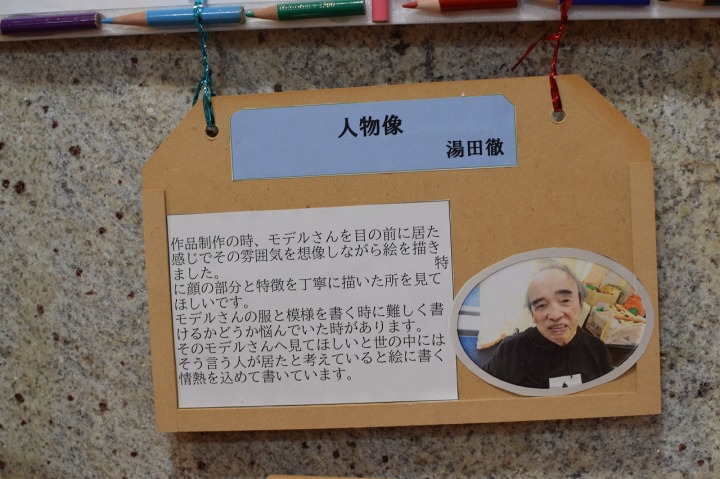 人物像
湯田徹
作品制作の時、モデルさんを目の前に居た
感じでその雰囲気を想像しながら絵を描き
ました。　　　　　　　　　　　　　　特
に顔の部分と特徴を丁寧に描いた所を見て
ほしいです。
モデルさんの服と模様を書く時に難しく書
けるかどうか悩んでいた時があります。
そのモデルさんへ見てほしいと世の中には
そう言う人が居たと考えていると絵に書く
情熱を込めて書いています。